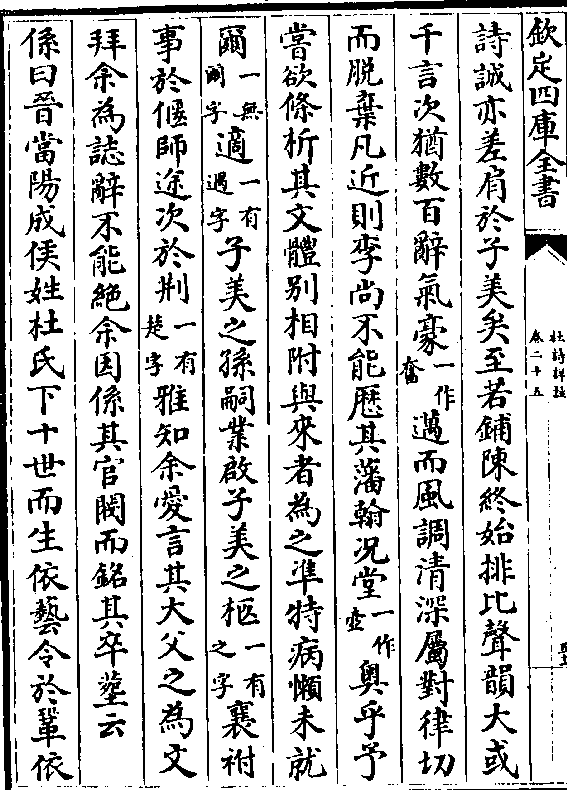 欽定四庫全書
杜詩詳註
卷二十五
詩誠亦差肩於子美矣至若鋪陳終始排比聲韻大或
千言次猶數百辭氣豪一作奮邁而風調清深屬對律切
而脫棄凡近則李尚不能歷其藩翰況堂一作壼奧乎予
嘗欲條析其文體別相附與來者為之凖特病懶未就
爾一無爾字適一有遇字子美之孫嗣業啟子美之柩一有之字襄祔
事於偃師途次於荆一有楚字雅知余愛言其大父之為文
拜余為誌辭不能絶余因係其官閥而銘其卒塟云
係曰晉當陽成侯姓杜氏下十世而生依藝令於鞏依